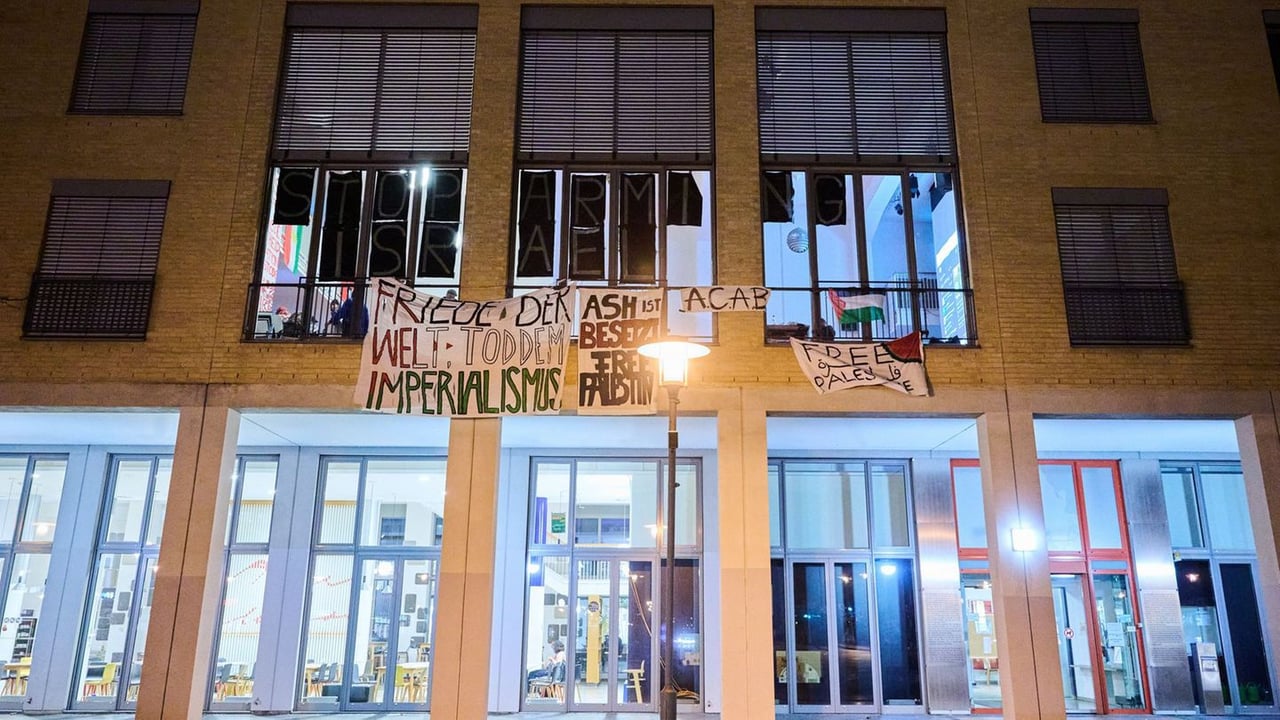 STOP ARMING
ISRAE
FRIEDE DER
WELT; TOD DEM
IMPERIALISMUS
ASH IST
BESETZT
FREE
PALÄSTINA
A.C.A.B
FREE